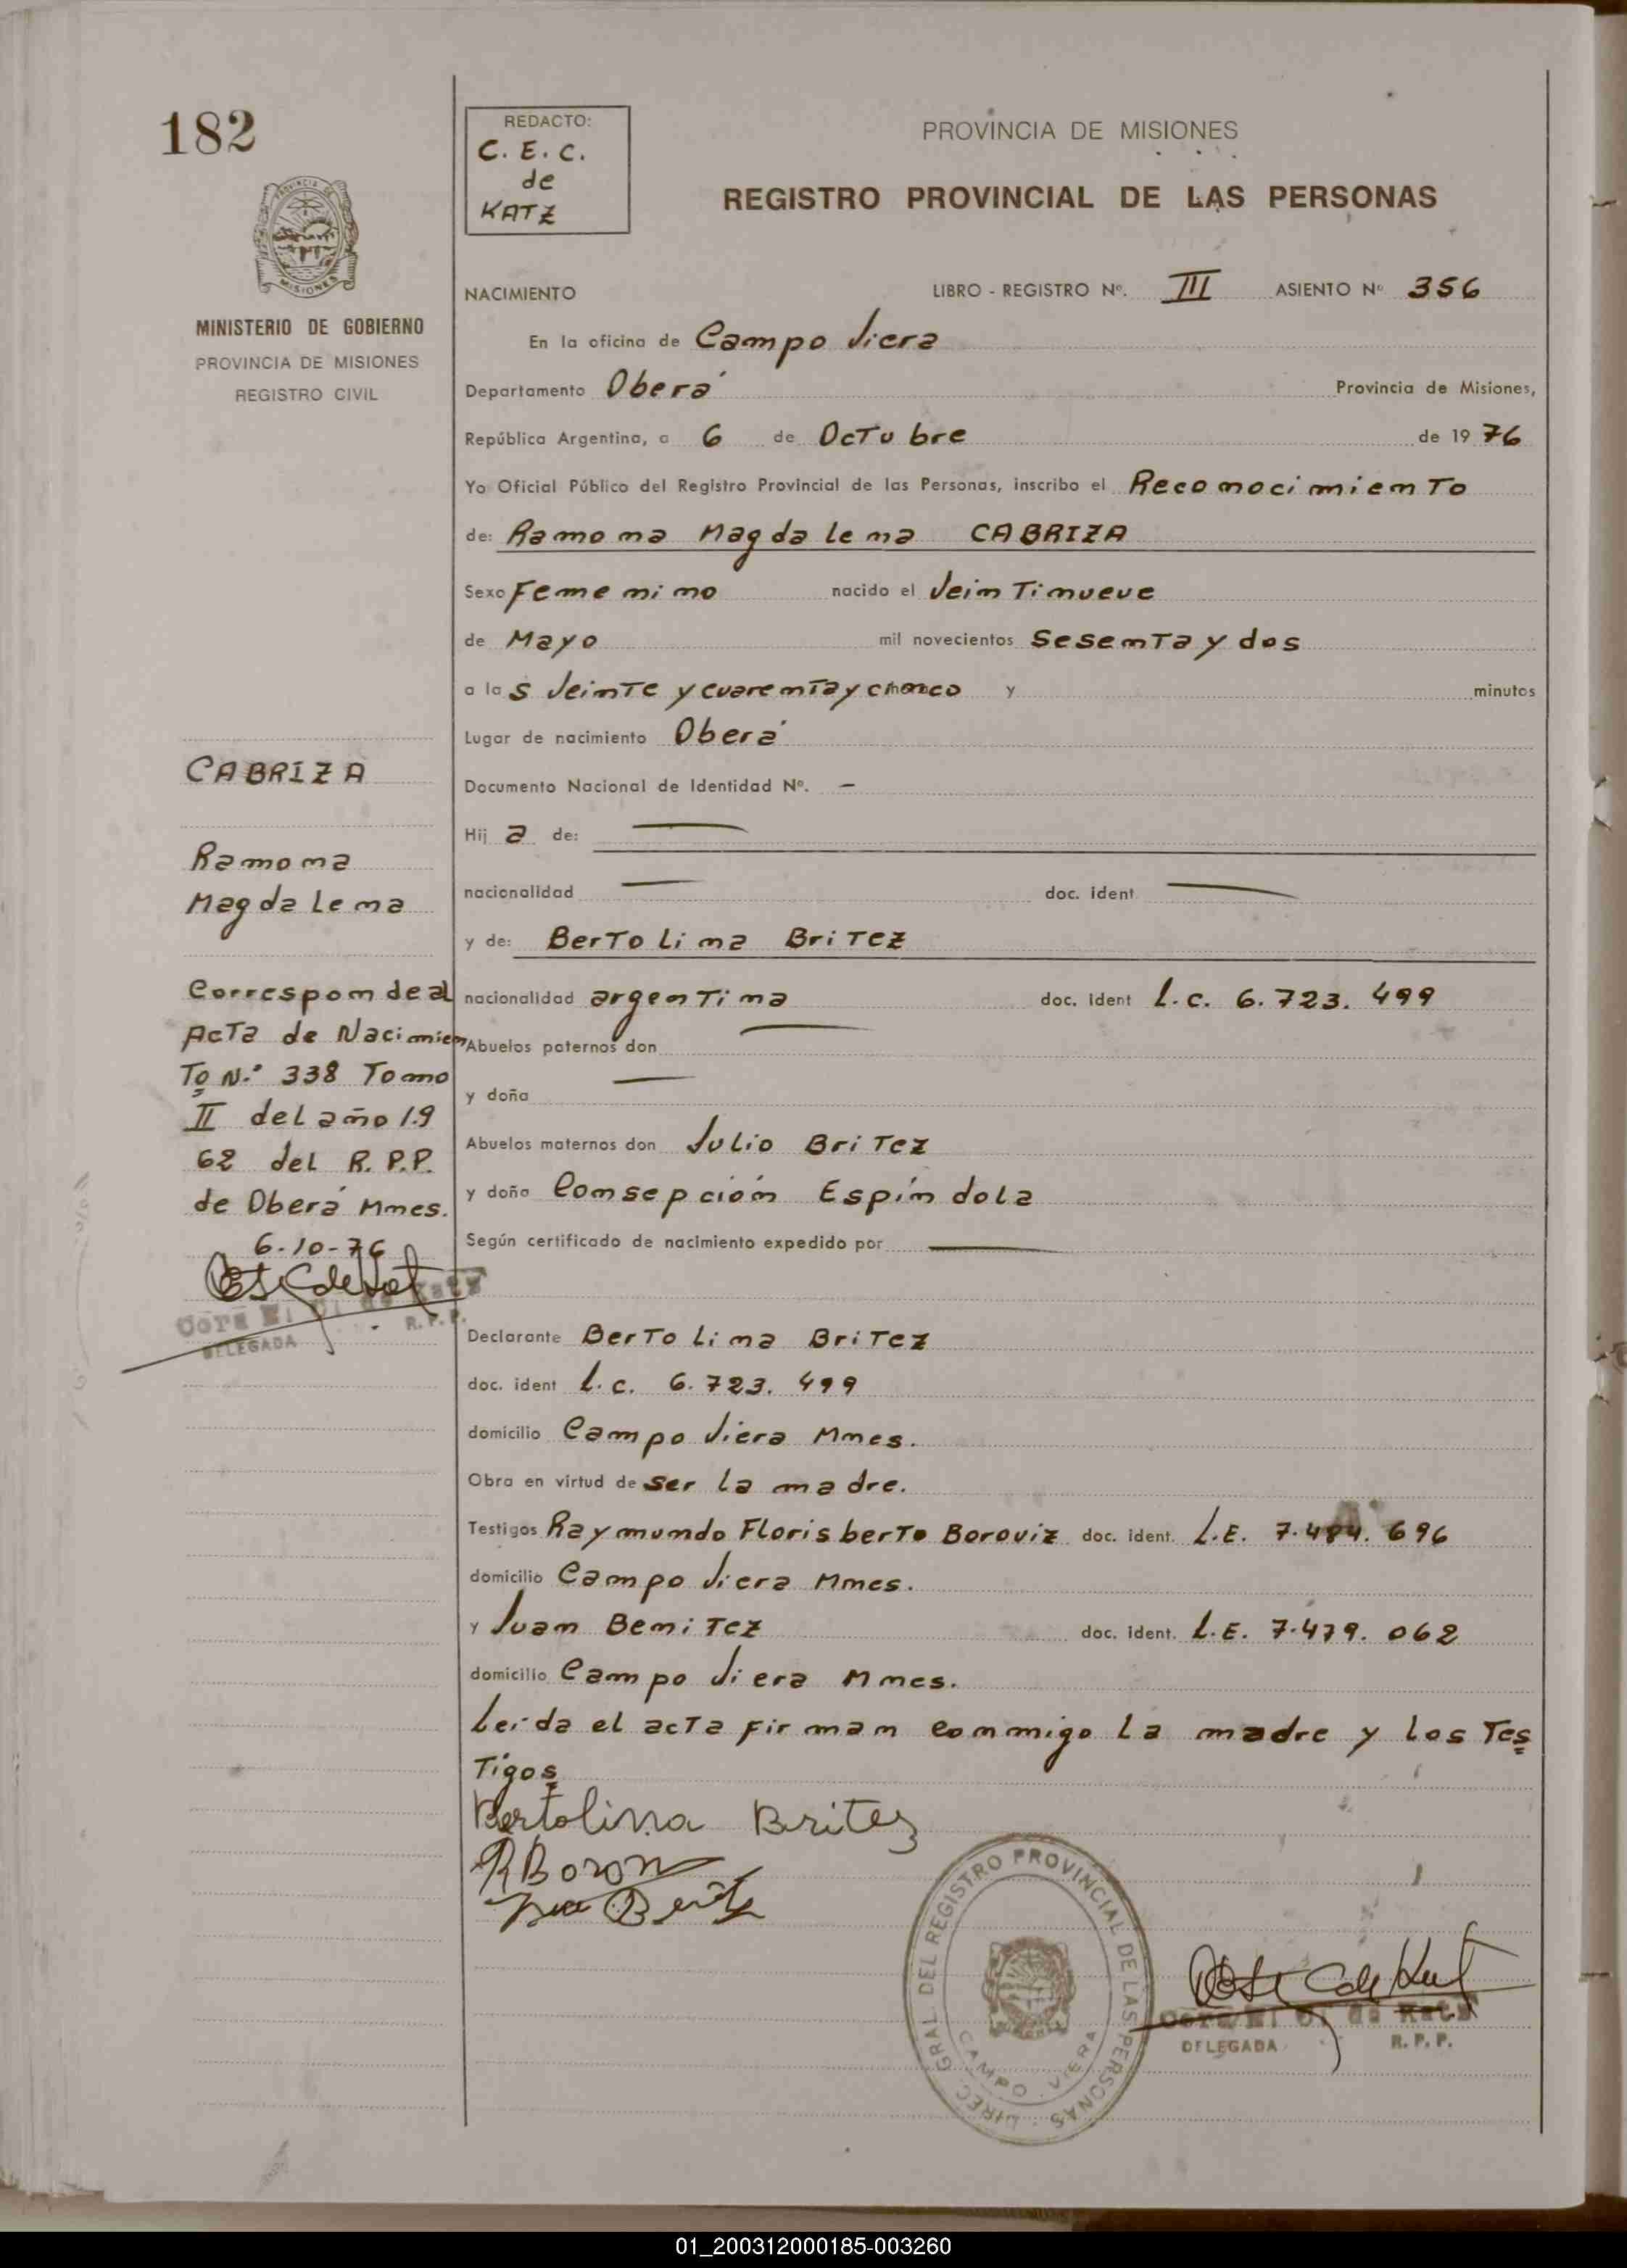 182
REDACTO:
C. E. C.
de
KATZ
PROVINCIA DE MISIONES
REGISTRO PROVINCIAL DE LAS PERSONAS
MISIONES
MINISTERIO DE GOBIERNO
PROVINCIA DE MISIONES
REGISTRO CIVIL
NACIMIENTO LIBRO - REGISTRO Nº. III ASIENTO Nº 356
En la oficina de Campo Viera
Departamento Oberá Provincia de Misiones,
República Argentina, a 6 de Octubre de 1976
Yo Oficial Público del Registro Provincial de las Personas, inscribo el Reconocimiento
de: Ramona Magdalena CABRIZA
Sexo Femenino nacido el Veintinueve
de Mayo mil novecientos Sesenta y dos
a las Veinte y cuarenta y cinco y minutos
Lugar de nacimiento Oberá
Documento Nacional de Identidad Nº. —
Hija de: —
nacionalidad — doc. ident. —
y de: Bertolina Britez
nacionalidad argentina doc. ident L.C. 6.723.499
Abuelos paternos don —
y doña —
Abuelos maternos don Julio Britez
y doña Consepción Espíndola
Según certificado de nacimiento expedido por —
Declarante Bertolina Britez
doc. ident L.C. 6.723.499
domicilio Campo Viera Mnes.
Obra en virtud de ser la madre.
Testigos Raymundo Florisberto Boroviz doc. ident. L.E. 7.484.696
domicilio Campo Viera Mnes.
y Juan Benitez doc. ident. L.E. 7.479.062
domicilio Campo Viera Mnes.
Leída el acta firman conmigo la madre y los tes
tigos
Bertolina Britez
CABRIZA
Ramona
Magdalena
Corresponde al
Acta de Nacimien
to N.º 338 Tomo
II del año 19
62 del R.P.P.
de Oberá Mnes.
6-10-76
DELEGADA R.P.P.
DIREC. GRAL. DEL REGISTRO PROVINCIAL DE LAS PERSONAS
CAMPO VIERA
de Katz
DELEGADA R.P.P.
01_200312000185-003260